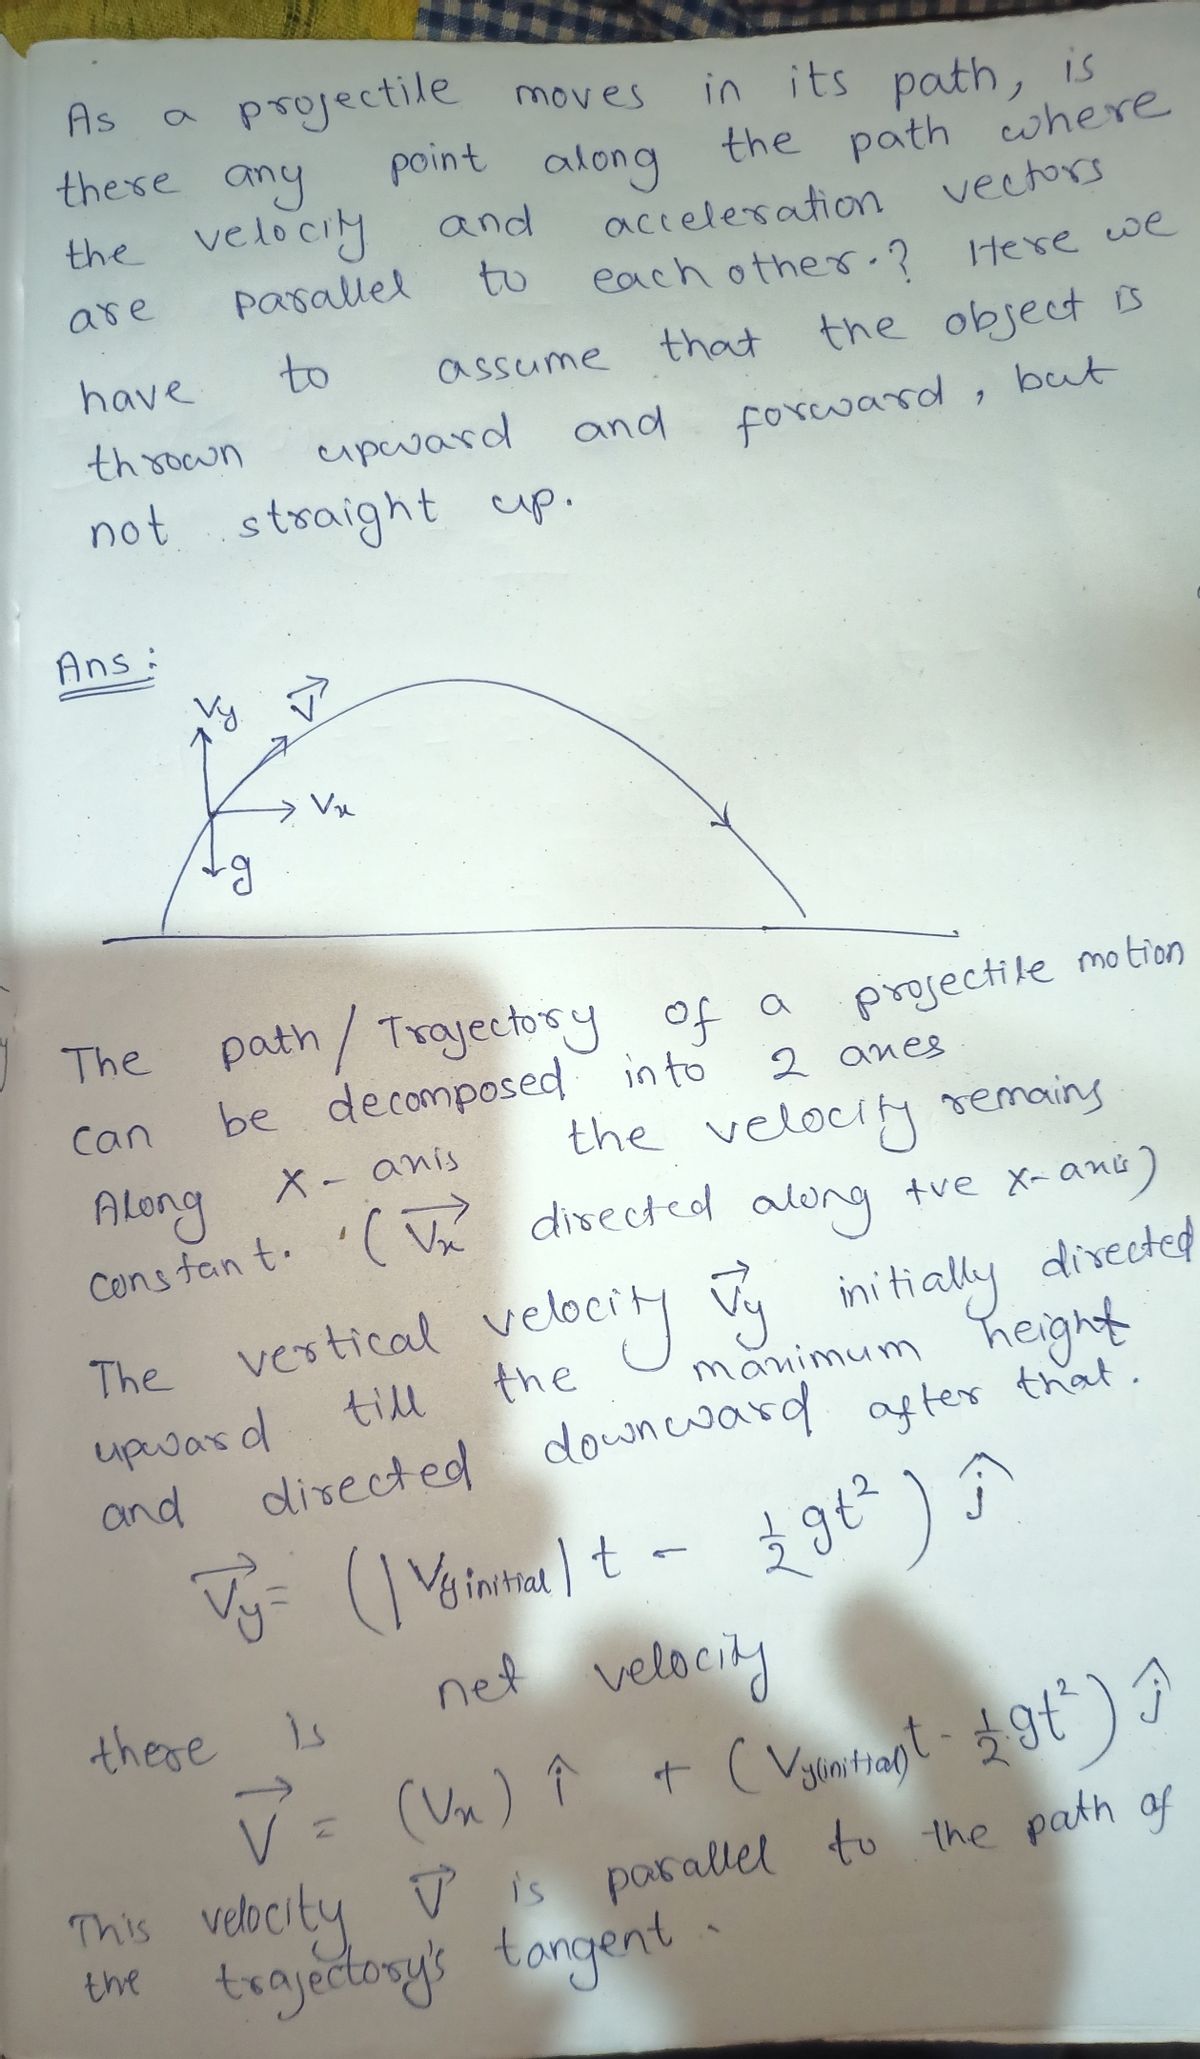 As a projectile moves in its path, is
there any point along the path where
the velocity and acceleration vectors
are parallel to each other.? Here we
have to assume that the object is
thrown upward and forward, but
not straight up.
Ans:
Vy V⃗
Vx
g
The path / Trajectory of a projectile motion
can be decomposed into 2 axes
Along x-axis the velocity remains
constant. (V⃗x directed along +ve x-axis)
The vertical velocity V⃗y initially directed
upward till the maximum height
and directed downward after that.
V⃗y = (|Vy initial| t - ½ gt²) ĵ
there is net velocity
V⃗ = (Vx) î + (Vy(initial)t - ½ gt²) ĵ
This velocity V⃗ is parallel to the path of
the trajectory's tangent.